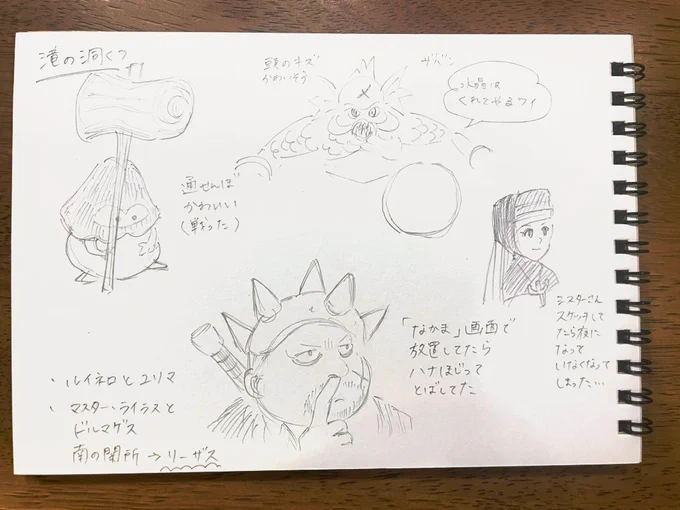 滝の洞くつ
頭のキズ
かわいそう
ザバン
水晶は
くれてやるワイ
通せんぼ
かわいい
(戦った)
「なかま」画面で
放置してたら
ハナほじって
とばしてた
シスターさん
スケッチして
たら夜に
なって
いなくなって
しまった…
、ルイネロとユリマ
、マスター・ライラスと
ドルマゲス
南の関所→リーザス